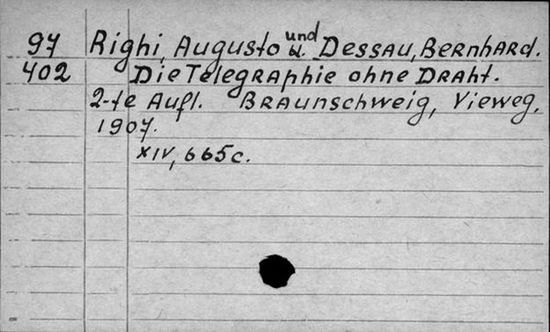 97 Righi, Augusto und u. Dessau, Bernhard.
402 Die Telegraphie ohne Draht.
2-te Aufl. Braunschweig, Vieweg,
1907.
XIV, 665c.